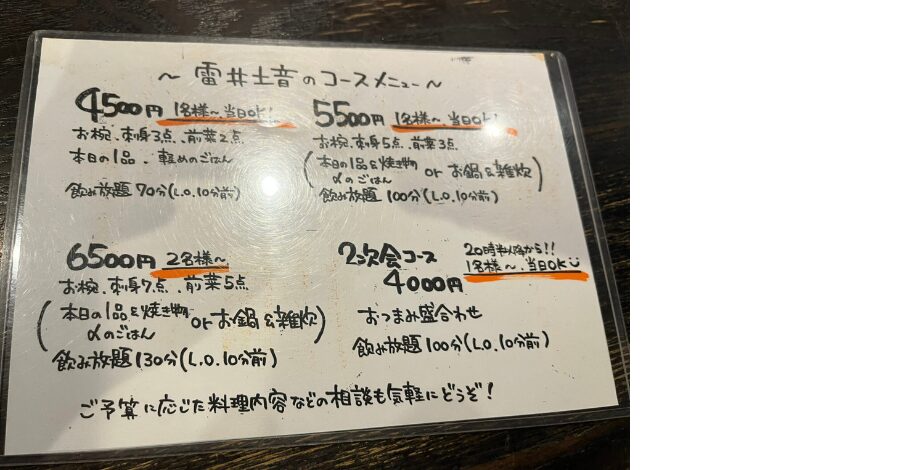 ～ 雷井土音のコースメニュー～
4500円 1名様～当日OK!
お椀、刺身3点、前菜2点
本日の1品、軽めのごはん
飲み放題 70分(L.O.10分前)
5500円 1名様～当日OK!
お椀、刺身5点、前菜3点
(本日の1品&焼き物 or お鍋&雑炊)
〆のごはん
飲み放題 100分(L.O.10分前)
6500円 2名様～
お椀、刺身7点、前菜5点
(本日の1品&焼き物 or お鍋&雑炊)
〆のごはん
飲み放題130分(L.O.10分前)
2次会コース 20時半以降から!!
4000円 1名様～、当日OK
おつまみ盛合わせ
飲み放題 100分(L.O.10分前)
ご予算に応じた料理内容などの相談も気軽にどうぞ!